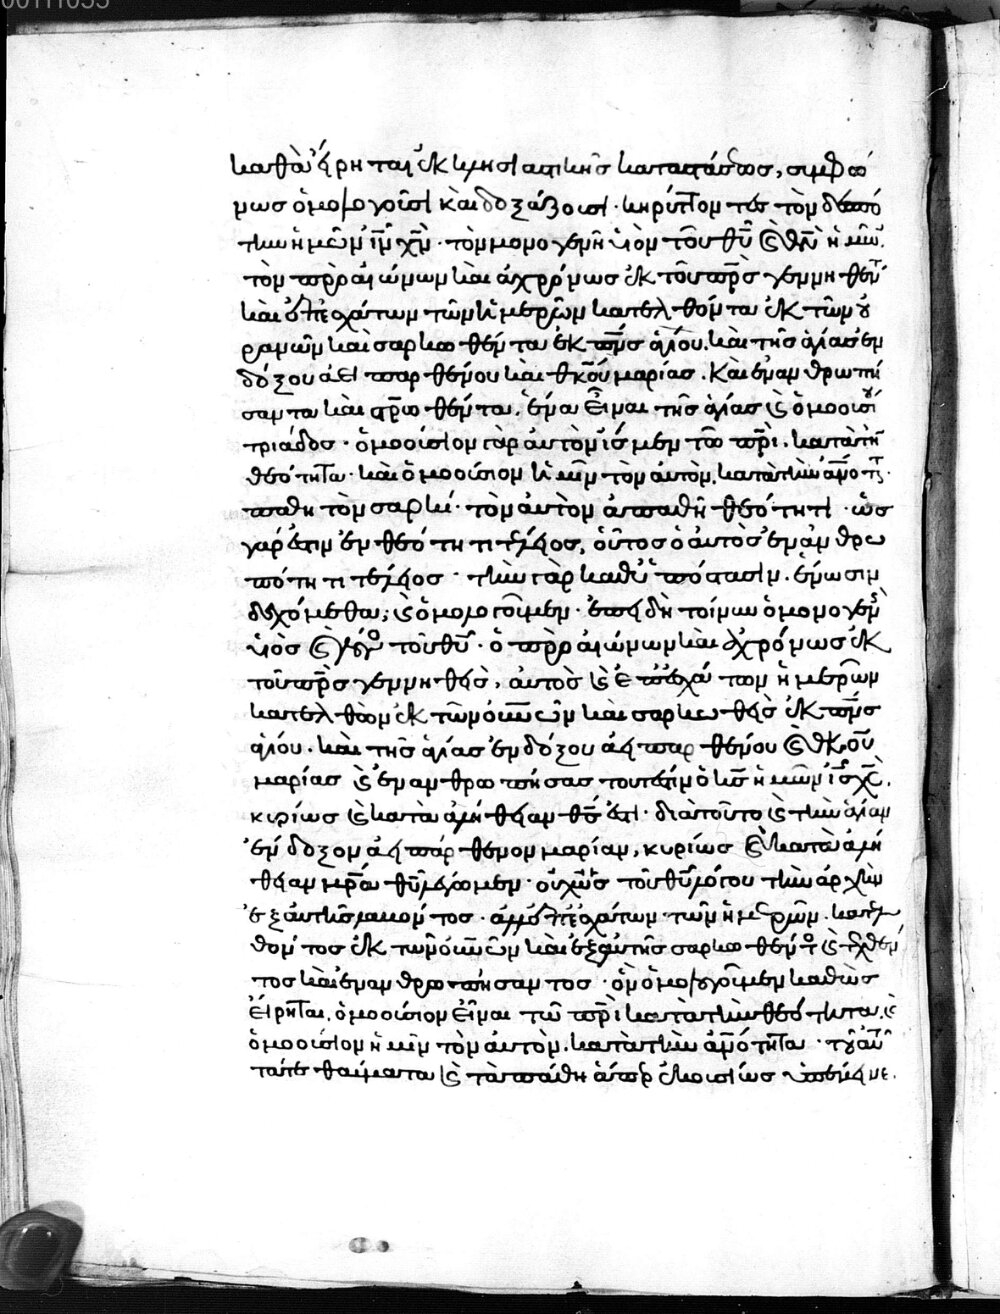 00111055
καθὰ εἴρηται ἐκκλησιαστικῆς καταστάσεως, συμφώ
νως ὁμολογοῦσι καὶ δοξάζουσι· κηρύττοντες τὸν δεσπό
την ἡμῶν ἰν χν· τὸν μονογενῆ υἱὸν τοῦ θυ καὶ θν ἡμῶν.
τὸν πρὸ αἰώνων καὶ ἀχρόνως ἐκ τοῦ πρς γεννηθέντα
καὶ ἐπ' ἐσχάτων τῶν ἡμερῶν κατελθόντα ἐκ τῶν οὐ
ρανῶν καὶ σαρκωθέντα ἐκ πνς ἁγίου. καὶ τῆς ἁγίας ἐν
δόξου ἀεὶ παρθένου καὶ θκου μαρίας. Καὶ ἐνανθρωπή
σαντα καὶ σταυρωθέντα. ἕνα εἶναι τῆς ἁγίας καὶ ὁμοουσίου
τριάδος· ὁμοούσιον γὰρ αὐτὸν ἴσμεν τῶ πρι. κατὰ τὴν
θεότητα· καὶ ὁμοούσιον ἡμῖν τὸν αὐτὸν. κατὰ τὴν ἀνότητα·
παθητὸν σαρκί· τὸν αὐτὸν ἀπαθῆ θεότητι· ὡς
γάρ ἐστιν ἐν θεότητι τέλειος, οὕτος ὁ αὐτὸς ἐν ἀνθρω
πότητι τέλειος· τὴν γὰρ καθ' ὑπόστασιν. ἕνωσιν
δεχόμεθα; καὶ ὁμολογοῦμεν· ἐπειδὴ τοίνυν ὁ μονογενὴς
υἱὸς καὶ λόγος τοῦ θυ· ὁ πρὸ αἰώνων καὶ ἀχρόνως ἐκ
τοῦ πρς γεννηθεὶς, αὐτὸς καὶ ἐπ' ἐσχάτων ἡμερῶν
κατελθὼν ἐκ τῶν οὐνῶν καὶ σαρκωθεὶς ἐκ πνς
ἁγίου. καὶ τῆς ἁγίας ἐνδόξου ἀειπαρθένου καὶ θκου
μαρίας καὶ ἐνανθρωπήσας τουτέστιν ὁ κς ἡμῶν ις χς.
κυρίως καὶ κατὰ ἀλήθειαν θς ἐστι· διὰ τοῦτο καὶ τὴν ἁγίαν
ἔνδοξον ἀειπάρθενον μαρίαν, κυρίως καὶ κατὰ ἀλή
θειαν μρα θυ λέγομεν· οὐχ ὡς τοῦ θυ λόγου τὴν ἀρχὴν
ἐξ αὐτῆς λαβόντος· ἀλλ' ἐπ' ἐσχάτων· τῶν ἡμερῶν. κατελ
θόντος ἐκ τῶν οὐνῶν καὶ ἐξ αὐτῆς σαρκωθέντος καὶ τεχθέν
τος καὶ ἐνανθρωπήσαντος· ὃν ὁμολογοῦμεν καθὼς
εἴρηται, ὁμοούσιον εἶναι τῶ πρι κατὰ τὴν θεότητα. καὶ
ὁμοούσιον ἡμῖν τὸν αὐτὸν. κατὰ τὴν ἀνότητα· τοῦ αὐτοῦ
τά τε θαύματα καὶ τὰ πάθη ἅπερ ἑκουσίως ὑπέμεινε.